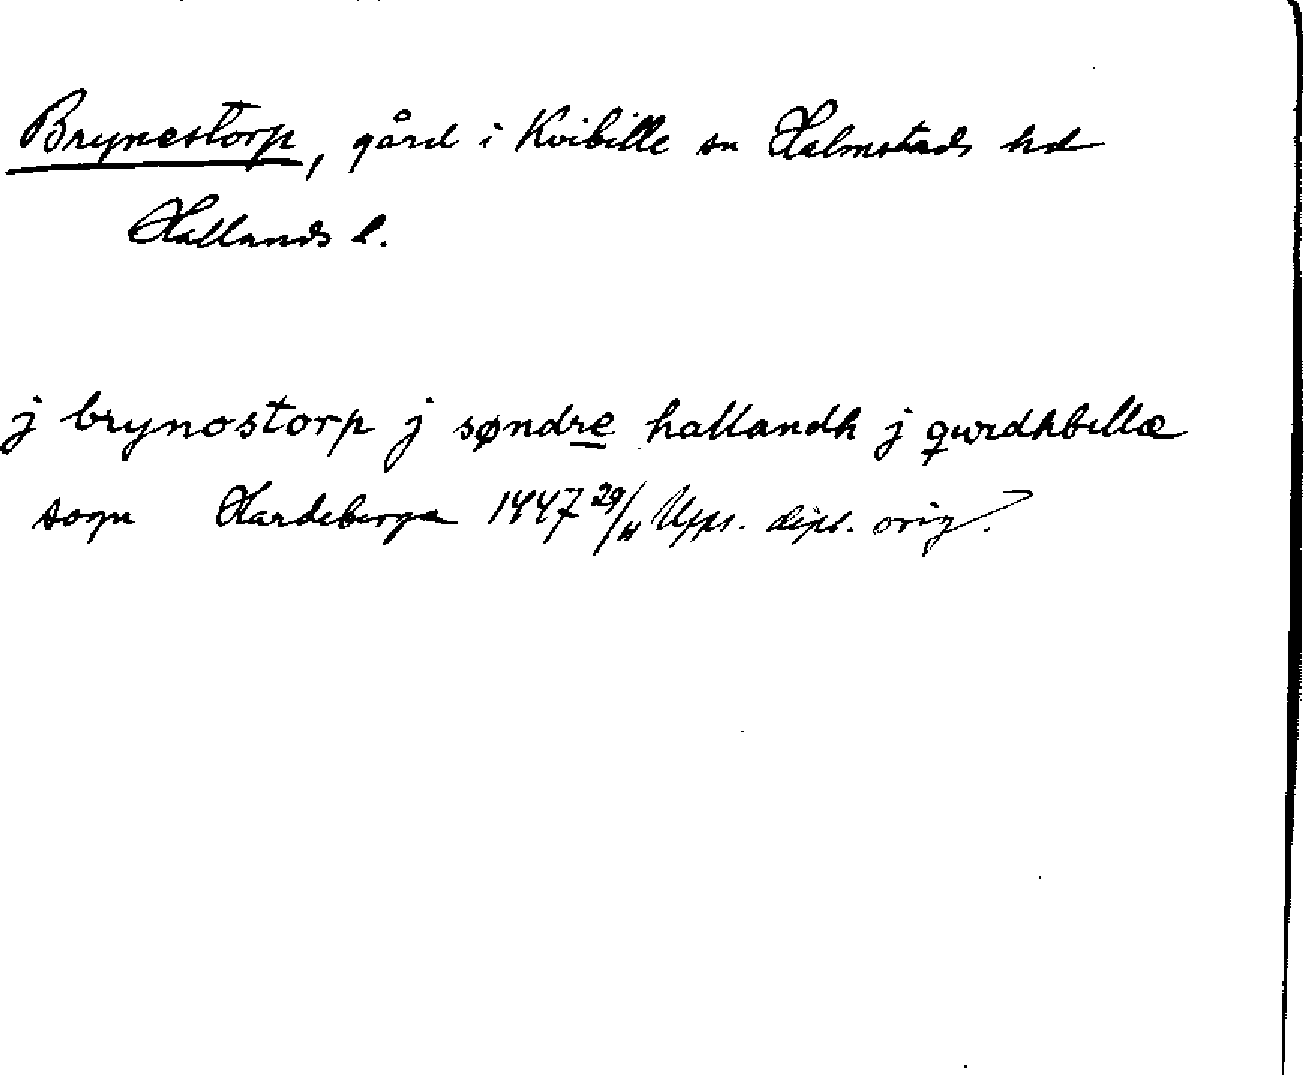 Brynestorp, gård i Kvibille sn Halmstads hd
Hallands l.
j brynostorp j søndre hallandh j qwidhbillæ
sogn Hardeberga 1447 29/11 Upps. dipl. orig.